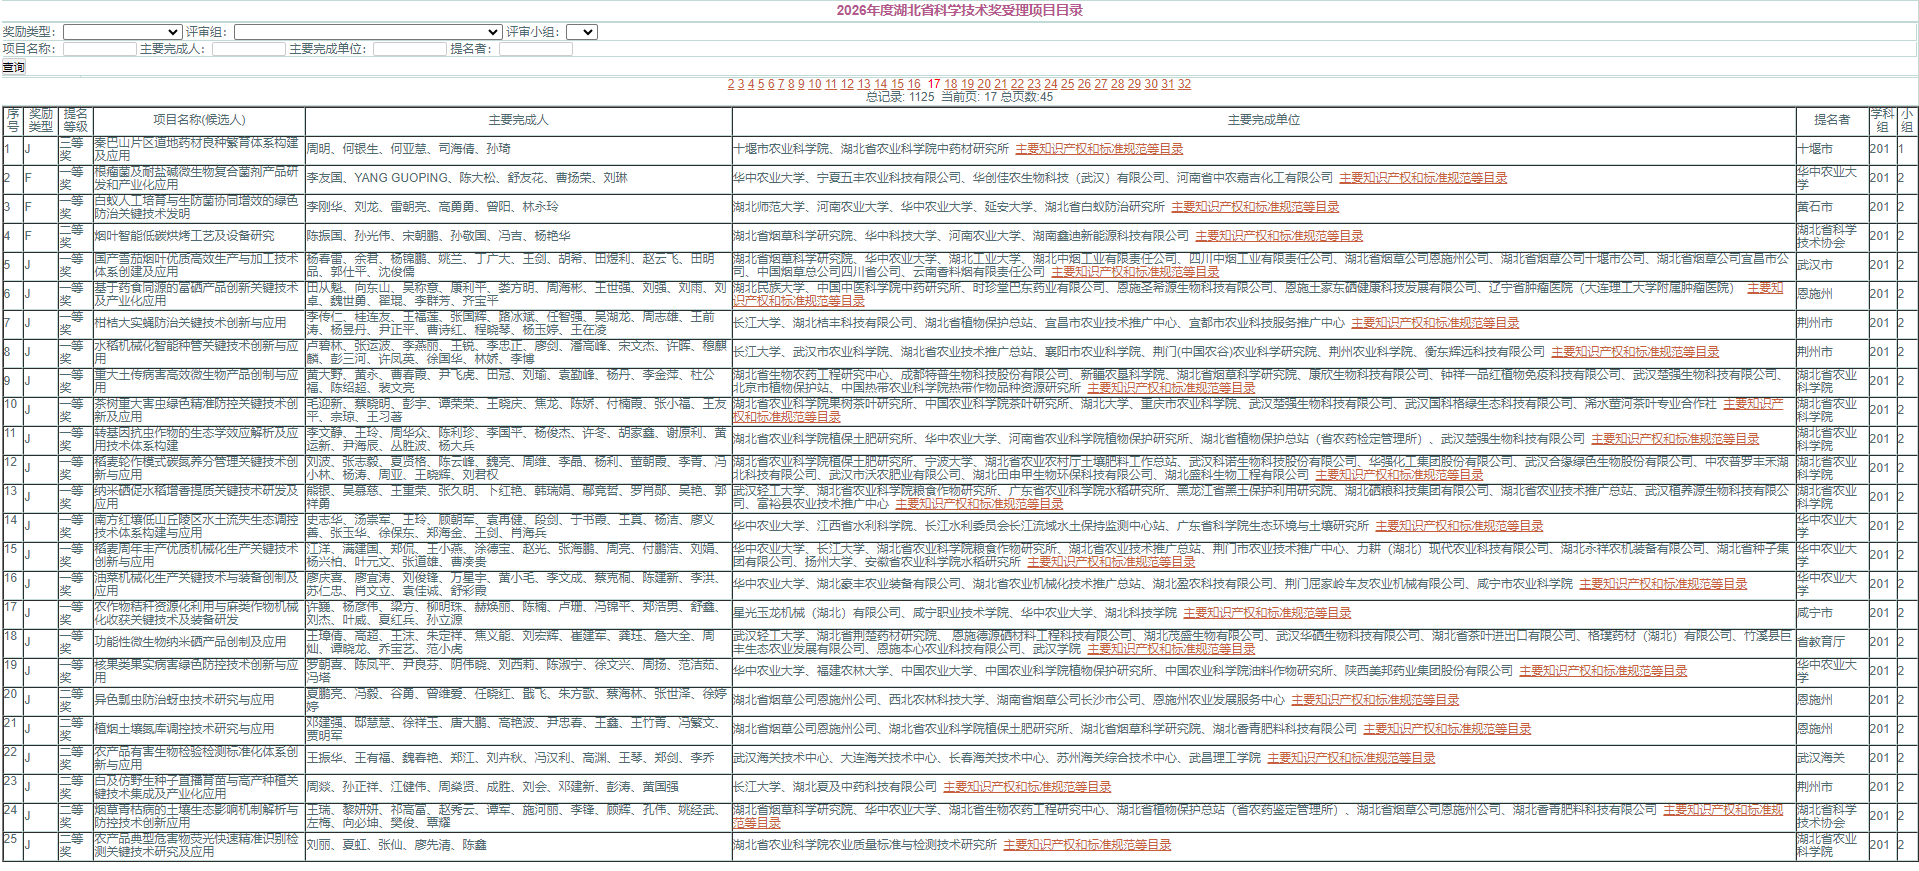 2026年度湖北省科学技术奖受理项目目录
奖励类型： 评审组： 评审小组：
项目名称： 主要完成人： 主要完成单位： 提名者：
查询
2 3 4 5 6 7 8 9 10 11 12 13 14 15 16 17 18 19 20 21 22 23 24 25 26 27 28 29 30 31 32
总记录: 1125 当前页: 17 总页数:45
序号 奖励类型 提名等级 项目名称(候选人) 主要完成人 主要完成单位 提名者 学科组 小组
1 J 三等奖 秦巴山片区道地药材良种繁育体系构建及应用 周明、何银生、何亚慧、司海倩、孙琦 十堰市农业科学院、湖北省农业科学院中药材研究所 主要知识产权和标准规范等目录 十堰市 201 1
2 F 一等奖 根瘤菌及耐盐碱微生物复合菌剂产品研发和产业化应用 李友国、YANG GUOPING、陈大松、舒友花、曹扬荣、刘琳 华中农业大学、宁夏五丰农业科技有限公司、华创佳农生物科技（武汉）有限公司、河南省中农嘉吉化工有限公司 主要知识产权和标准规范等目录 华中农业大学 201 2
3 F 一等奖 白蚁人工培育与生防菌协同增效的绿色防治关键技术发明 李刚华、刘龙、雷朝亮、高勇勇、曾阳、林永玲 湖北师范大学、河南农业大学、华中农业大学、延安大学、湖北省白蚁防治研究所 主要知识产权和标准规范等目录 黄石市 201 2
4 F 二等奖 烟叶智能低碳烘烤工艺及设备研究 陈振国、孙光伟、宋朝鹏、孙敬国、冯吉、杨艳华 湖北省烟草科学研究院、华中科技大学、河南农业大学、湖南鑫迪新能源科技有限公司 主要知识产权和标准规范等目录 湖北省科学技术协会 201 2
5 J 一等奖 国产雪茄烟叶优质高效生产与加工技术体系创建及应用 杨春雷、余君、杨锦鹏、姚兰、丁广大、王剑、胡希、田煜利、赵云飞、田明品、郭仕平、沈俊儒 湖北省烟草科学研究院、华中农业大学、湖北工业大学、湖北中烟工业有限责任公司、四川中烟工业有限责任公司、湖北省烟草公司恩施州公司、湖北省烟草公司十堰市公司、湖北省烟草公司宜昌市公司、中国烟草总公司四川省公司、云南香料烟有限责任公司 主要知识产权和标准规范等目录 武汉市 201 2
6 J 一等奖 基于药食同源的富硒产品创新关键技术及产业化应用 田从魁、向东山、吴称意、康利平、娄方明、周海彬、王世强、刘强、刘雨、刘卓、魏世勇、翟琨、李群芳、齐宝平 湖北民族大学、中国中医科学院中药研究所、时珍堂巴东药业有限公司、恩施圣希源生物科技有限公司、恩施土家东硒健康科技发展有限公司、辽宁省肿瘤医院（大连理工大学附属肿瘤医院） 主要知识产权和标准规范等目录 恩施州 201 2
7 J 一等奖 柑桔大实蝇防治关键技术创新与应用 李传仁、桂连友、王福莲、张国辉、路冰斌、任智强、吴湖龙、周志雄、王前涛、杨昱丹、尹正平、曹诗红、程晓琴、杨玉婷、王在凌 长江大学、湖北桔丰科技有限公司、湖北省植物保护总站、宜昌市农业技术推广中心、宜都市农业科技服务推广中心 主要知识产权和标准规范等目录 荆州市 201 2
8 J 一等奖 水稻机械化智能种管关键技术创新与应用 卢碧林、张运波、李燕丽、王锐、李忠正、廖剑、潘高峰、宋文杰、许晖、穆麒麟、彭三河、许凤英、徐国华、林娇、李博 长江大学、武汉市农业科学院、湖北省农业技术推广总站、襄阳市农业科学院、荆门(中国农谷)农业科学研究院、荆州农业科学院、衡东辉远科技有限公司 主要知识产权和标准规范等目录 荆州市 201 2
9 J 一等奖 重大土传病害高效微生物产品创制与应用 黄大野、黄永、曹春霞、尹飞虎、田冠、刘瑜、袁勤峰、杨丹、李金萍、杜公福、陈绍超、裴文亮 湖北省生物农药工程研究中心、成都特普生物科技股份有限公司、新疆农垦科学院、湖北省烟草科学研究院、康欣生物科技有限公司、钟祥一品红植物免疫科技有限公司、武汉楚强生物科技有限公司、北京市植物保护站、中国热带农业科学院热带作物品种资源研究所 主要知识产权和标准规范等目录 湖北省农业科学院 201 2
10 J 一等奖 茶树重大害虫绿色精准防控关键技术创新及应用 毛迎新、蔡晓明、彭宇、谭荣荣、王晓庆、焦龙、陈娇、付楠霞、张小福、王友平、宗琼、王习著 湖北省农业科学院果树茶叶研究所、中国农业科学院茶叶研究所、湖北大学、重庆市农业科学院、武汉楚强生物科技有限公司、武汉国科格绿生态科技有限公司、浠水董河茶叶专业合作社 主要知识产权和标准规范等目录 湖北省农业科学院 201 2
11 J 一等奖 转基因抗虫作物的生态学效应解析及应用技术体系构建 李文静、王玲、周华众、陈利珍、李国平、杨俊杰、许冬、胡家鑫、谢原利、黄运新、尹海辰、丛胜波、杨大兵 湖北省农业科学院植保土肥研究所、华中农业大学、河南省农业科学院植物保护研究所、湖北省植物保护总站（省农药检定管理所）、武汉楚强生物科技有限公司 主要知识产权和标准规范等目录 湖北省农业科学院 201 2
12 J 一等奖 稻麦轮作模式碳氮养分管理关键技术创新与应用 刘波、张志毅、夏贤格、陈云峰、魏亮、周维、李晶、杨利、董朝霞、李青、冯小林、杨涛、周亚、王晓辉、刘君权 湖北省农业科学院植保土肥研究所、宁波大学、湖北省农业农村厅土壤肥料工作总站、武汉科诺生物科技股份有限公司、华强化工集团股份有限公司、武汉合缘绿色生物股份有限公司、中农普罗丰禾湖北科技有限公司、武汉市沃农肥业有限公司、湖北田申甲生物环保科技有限公司、湖北盛科生物工程有限公司 主要知识产权和标准规范等目录 湖北省农业科学院 201 2
13 J 一等奖 纳米硒促水稻增香提质关键技术研发及应用 熊银、吴慕慈、王重荣、张久明、卜红艳、韩瑞娟、鄢竞哲、罗肖郧、吴艳、郭祥勇 武汉轻工大学、湖北省农业科学院粮食作物研究所、广东省农业科学院水稻研究所、黑龙江省黑土保护利用研究院、湖北硒粮科技集团有限公司、湖北省农业技术推广总站、武汉植养源生物科技有限公司、富裕县农业技术推广中心 主要知识产权和标准规范等目录 湖北省农业科学院 201 2
14 J 一等奖 南方红壤低山丘陵区水土流失生态调控技术体系构建与应用 史志华、汤崇军、王玲、顾朝军、袁再健、段剑、于书霞、王真、杨洁、廖义善、张玉华、徐保东、郑海金、王剑、肖海兵 华中农业大学、江西省水利科学院、长江水利委员会长江流域水土保持监测中心站、广东省科学院生态环境与土壤研究所 主要知识产权和标准规范等目录 华中农业大学 201 2
15 J 一等奖 稻麦周年丰产优质机械化生产关键技术创新与应用 江洋、满建国、郑侃、王小燕、涂德宝、赵光、张海鹏、周亮、付鹏浩、刘娟、杨兴柏、叶元文、张道雄、曹凑贵 华中农业大学、长江大学、湖北省农业科学院粮食作物研究所、湖北省农业技术推广总站、荆门市农业技术推广中心、力耕（湖北）现代农业科技有限公司、湖北永祥农机装备有限公司、湖北省种子集团有限公司、扬州大学、安徽省农业科学院水稻研究所 主要知识产权和标准规范等目录 华中农业大学 201 2
16 J 一等奖 油菜机械化生产关键技术与装备创制及应用 廖庆喜、廖宜涛、刘俊锋、万星宇、黄小毛、李文成、蔡克桐、陈建新、李洪、苏仁忠、肖文立、袁佳诚、舒彩霞 华中农业大学、湖北豪丰农业装备有限公司、湖北省农业机械化技术推广总站、湖北盈农科技有限公司、荆门屈家岭车友农业机械有限公司、咸宁市农业科学院 主要知识产权和标准规范等目录 华中农业大学 201 2
17 J 一等奖 农作物秸秆资源化利用与麻类作物机械化收获关键技术及装备研发 许巍、杨彦伟、梁方、柳明珠、赫焕丽、陈楠、卢珊、冯锦平、郑浩男、舒鑫、刘杰、叶威、夏红兵、孙立源 星光玉龙机械（湖北）有限公司、咸宁职业技术学院、华中农业大学、湖北科技学院 主要知识产权和标准规范等目录 咸宁市 201 2
18 J 一等奖 功能性微生物纳米硒产品创制及应用 王璋倩、高超、王沫、朱定祥、焦义能、刘宏辉、崔建军、龚珏、詹大全、周灿、谭晓龙、乔宝艺、范小虎 武汉轻工大学、湖北省荆楚药材研究院、 恩施德源硒材料工程科技有限公司、湖北茂盛生物有限公司、武汉华硒生物科技有限公司、湖北省茶叶进出口有限公司、格璞药材（湖北）有限公司、竹溪县巨丰生态农业发展有限公司、恩施本心农业科技有限公司、武汉学院 主要知识产权和标准规范等目录 省教育厅 201 2
19 J 一等奖 核果类果实病害绿色防控技术创新与应用 罗朝喜、陈凤平、尹良芬、阴伟晓、刘西莉、陈淑宁、徐文兴、周扬、范洁茹、冯塔 华中农业大学、福建农林大学、中国农业大学、中国农业科学院植物保护研究所、中国农业科学院油料作物研究所、陕西美邦药业集团股份有限公司 主要知识产权和标准规范等目录 华中农业大学 201 2
20 J 二等奖 异色瓢虫防治蚜虫技术研究与应用 夏鹏亮、冯毅、谷勇、曾维爱、任晓红、戢飞、朱方歌、蔡海林、张世泽、徐婷婷 湖北省烟草公司恩施州公司、西北农林科技大学、湖南省烟草公司长沙市公司、恩施州农业发展服务中心 主要知识产权和标准规范等目录 恩施州 201 2
21 J 二等奖 植烟土壤氮库调控技术研究与应用 邓建强、邸慧慧、徐祥玉、唐大鹏、高艳波、尹忠春、王鑫、王竹青、冯繁文、贾明军 湖北省烟草公司恩施州公司、湖北省农业科学院植保土肥研究所、湖北省烟草科学研究院、湖北香青肥料科技有限公司 主要知识产权和标准规范等目录 恩施州 201 2
22 J 二等奖 农产品有害生物检验检测标准化体系创新与应用 王振华、王有福、魏春艳、郑江、刘卉秋、冯汉利、高渊、王琴、郑剑、李乔 武汉海关技术中心、大连海关技术中心、长春海关技术中心、苏州海关综合技术中心、武昌理工学院 主要知识产权和标准规范等目录 武汉海关 201 2
23 J 二等奖 白及仿野生种子直播育苗与高产种植关键技术集成及产业化应用 周燚、孙正祥、江健伟、周燊贤、成胜、刘会、邓建新、彭涛、黄国强 长江大学、湖北夏及中药科技有限公司 主要知识产权和标准规范等目录 荆州市 201 2
24 J 二等奖 烟草青枯病的土壤生态影响机制解析与防控技术创新应用 王瑞、黎妍妍、祁高富、赵秀云、谭军、施河丽、李锋、顾辉、孔伟、姚经武、左梅、向必坤、樊俊、覃耀 湖北省烟草科学研究院、华中农业大学、湖北省生物农药工程研究中心、湖北省植物保护总站（省农药鉴定管理所）、湖北省烟草公司恩施州公司、湖北香青肥料科技有限公司 主要知识产权和标准规范等目录 湖北省科学技术协会 201 2
25 J 二等奖 农产品典型危害物荧光快速精准识别检测关键技术研究及应用 刘丽、夏虹、张仙、廖先清、陈鑫 湖北省农业科学院农业质量标准与检测技术研究所 主要知识产权和标准规范等目录 湖北省农业科学院 201 2